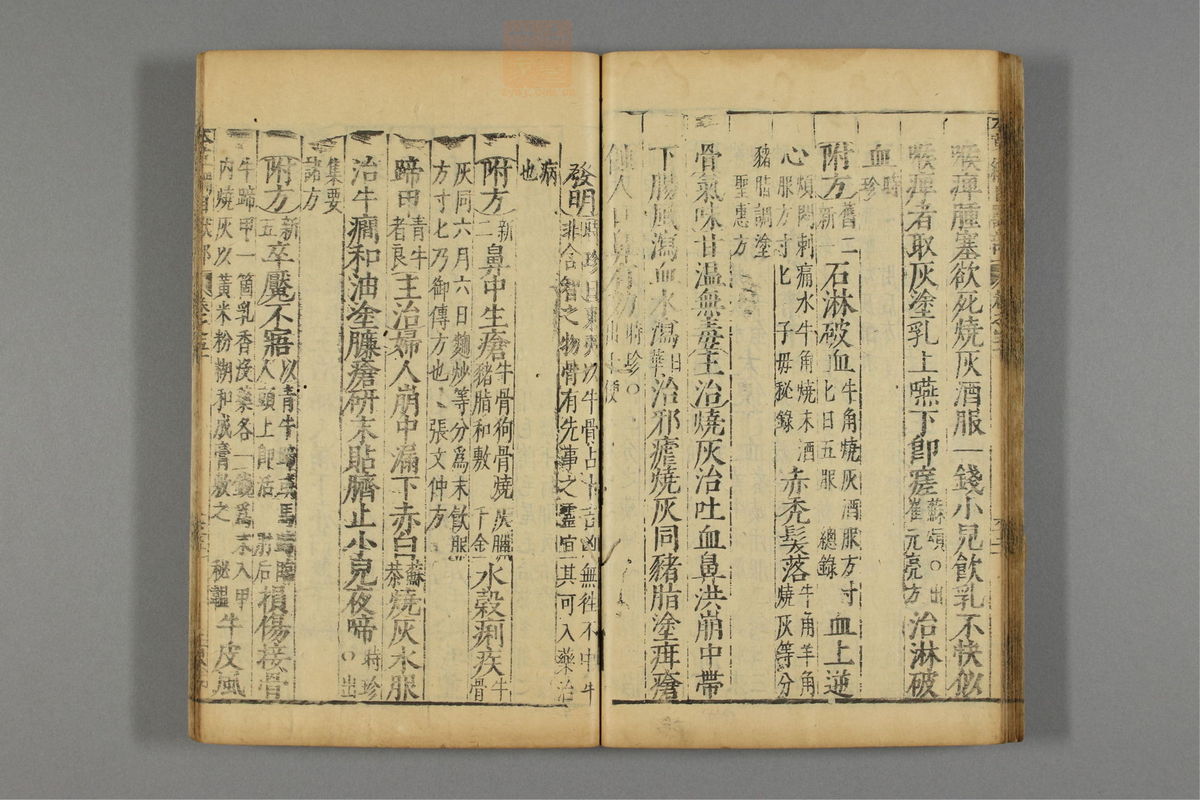 喉痺腫塞欲死燒灰酒服一錢小兒飲乳不快似
喉痺者取灰塗乳上嚥下卽瘥蘇頌○出崔元亮方治淋破
血時珍
附方舊二新一石淋破血牛角燒灰酒服方寸匕日五服總錄血上逆
心煩悶刺痛水牛角燒末酒服方寸匕子母秘錄赤禿髮落牛角羊角燒灰等分
豬脂調塗聖惠方
骨氣味甘溫無毒主治燒灰治吐血鼻洪崩中帶
下腸風瀉血水瀉日華治邪瘧燒灰同豬脂塗疳瘡
蝕人口鼻有効時珍○出十便
發明時珍曰東夷以牛骨占卜吉凶無往不中牛非含智之物骨有先事之靈宜其可入藥治
病也
附方新二鼻中生瘡牛骨狗骨燒灰臘豬脂和敷千金水穀痢疾牛骨
灰同六月六日麴炒等分爲末飲服方寸匕乃御傳方也張文仲方
蹄甲青牛者良主治婦人崩中漏下赤白蘇恭燒灰水服
治牛癇和油塗臁瘡硏末貼臍止小兒夜啼時珍○出
集要諸方
附方新五卒魘不寤以青牛蹄或馬蹄臨人頭上卽活肘后損傷接骨
牛蹄甲一箇乳香沒藥各一錢爲末入甲內燒灰以黃米粉糊和成膏敷之秘韞牛皮風